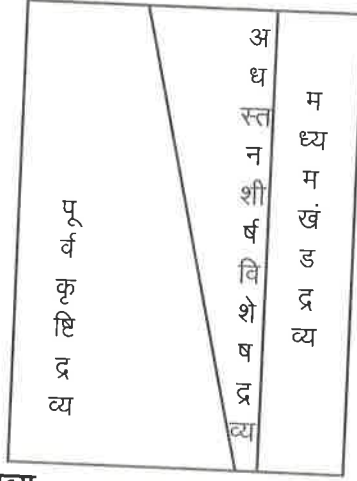 पूर्वकृष्टिद्रव्य
अधस्तनशीर्षविशेषद्रव्य
मध्यमखंडद्रव्य